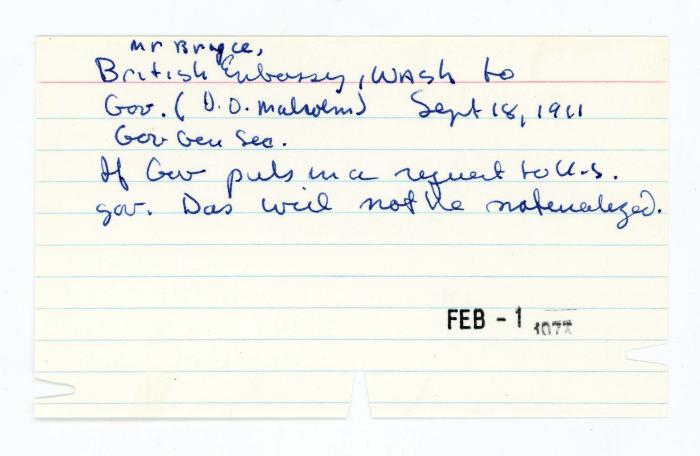 Mr Bryce,
British Embassy, Wash to
Gov. (D.O. Malcolm) Sept 18, 1911
Gov Gen Sec.
If Gov puts in a request to U.S.
gov. Das will not be naturalized.
FEB - 1